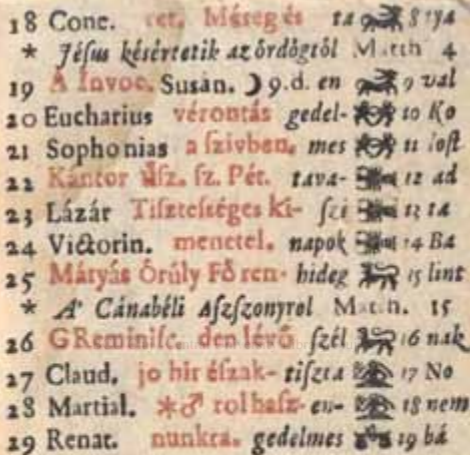 18 Conc. ret. Méreg és ta 8 tya
* Jésus késértetik az ördögtöl Matth 4
19 A Invoc. Susan. ☽ 9.d. en 9 val
20 Eucharius vérontás gedel- 10 Ko
21 Sophonias a ſzivben. mes 11 ſoſt
22 Kántor ſz. ſz. Pét. tava- 12 ad
23 Lázár Tiſzteſséges ki- ſzi 13 ta
24 Victorin. menetel. napok 14 Ba
25 Mátyás Örúly Fö ren- hideg 15 lint
* A' Cánabéli Aſzſzonyrol Matth. 15
26 G Reminiſc. den lévö ſzél 16 nak
27 Claud. jo hir éſzak- tiſzta 17 No
28 Martial. *♂ rol haſz- en- 18 nem
29 Renat. nunkra. gedelmes 19 bá